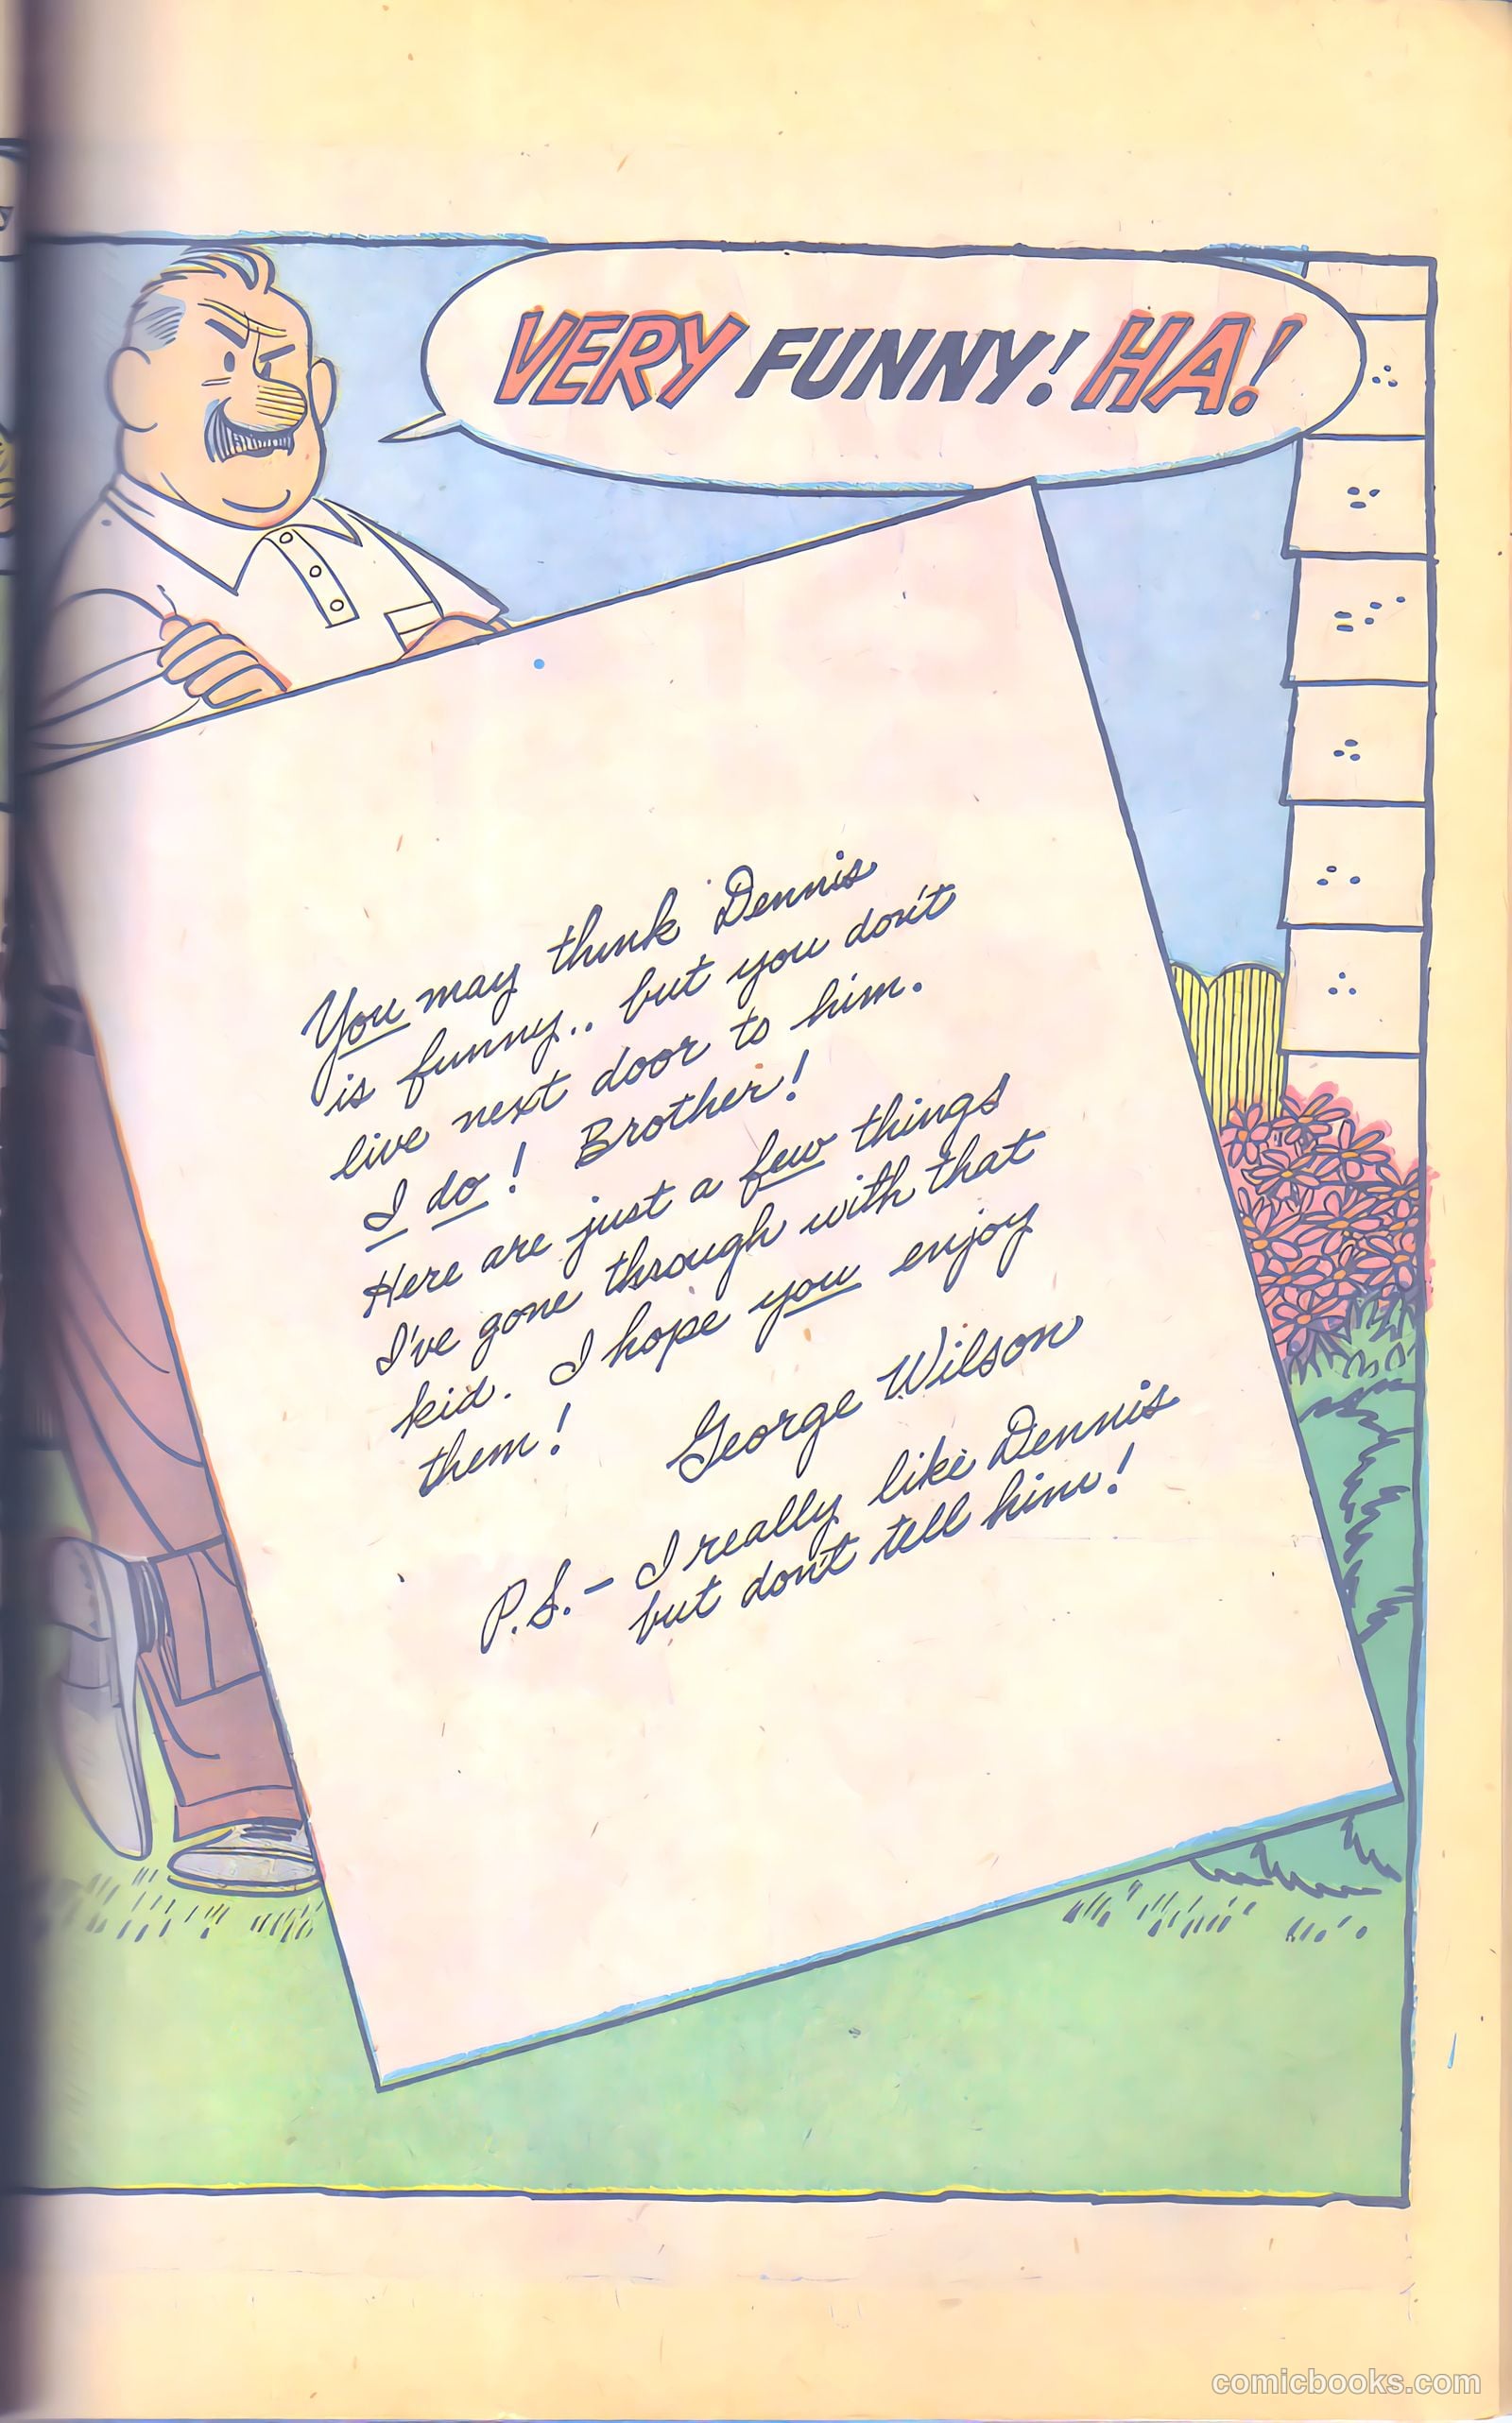 VERY FUNNY! HA!
You may think Dennis
is funny.. but you don't
live next door to him.
I do! Brother!
Here are just a few things
I've gone through with that
kid. I hope you enjoy
them!
George Wilson
P.S.- I really like Dennis
but don't tell him!
comicbooks.com